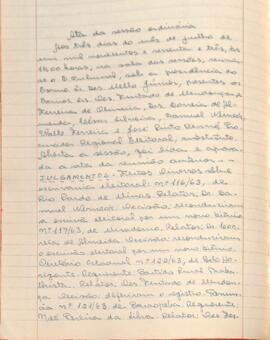 Ata da sessão ordinária
Aos três dias do mês de julho de
um mil novecentos e sessenta e três, às
14,00 horas, na sala das sessões, reuniu-
se o Tribunal, sob a presidência do
Exmo. Sr. Des. Mello Júnior, presentes os
Exmos. srs. Des. Furtado de Mendonça,
Ferreira de Oliveira, Drs. Correia de Al-
meida, César Silveira, Manuel
Ferreira e José Pinto Pro-
curador Regional Eleitoral, substituto.
Aberta a sessão, foi lida e aprova-
da a ata da reunião anterior. —
JULGAMENTOS. Feitos Diversos sobre
escrivania eleitoral: nº 116/63, de
Rio Pardo de Minas. Relator: Dr. Ma-
nuel Decisão: reconduziram
o escrivão eleitoral por um novo biênio.
nº 117/63, de Miradouro. Relator: Dr. Cor-
reia de Almeida. Decisão: reconduziram
o escrivão eleitoral por um novo biênio.
Diretório nº 120/63, de Belo Ho-
rizonte. Requerente: Partido Rural Traba-
lhista. Relator: Des. Furtado de Mendon-
ça. Decisão: deferiram o registro.
nº 121/63, de Paraopeba. Requerente,
José Pereira da Silva. Relator: Des. Fer-